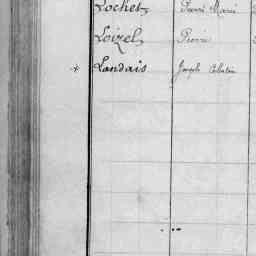 Lochet Pierre Marie
Loizel Pierre
* Landais Joseph